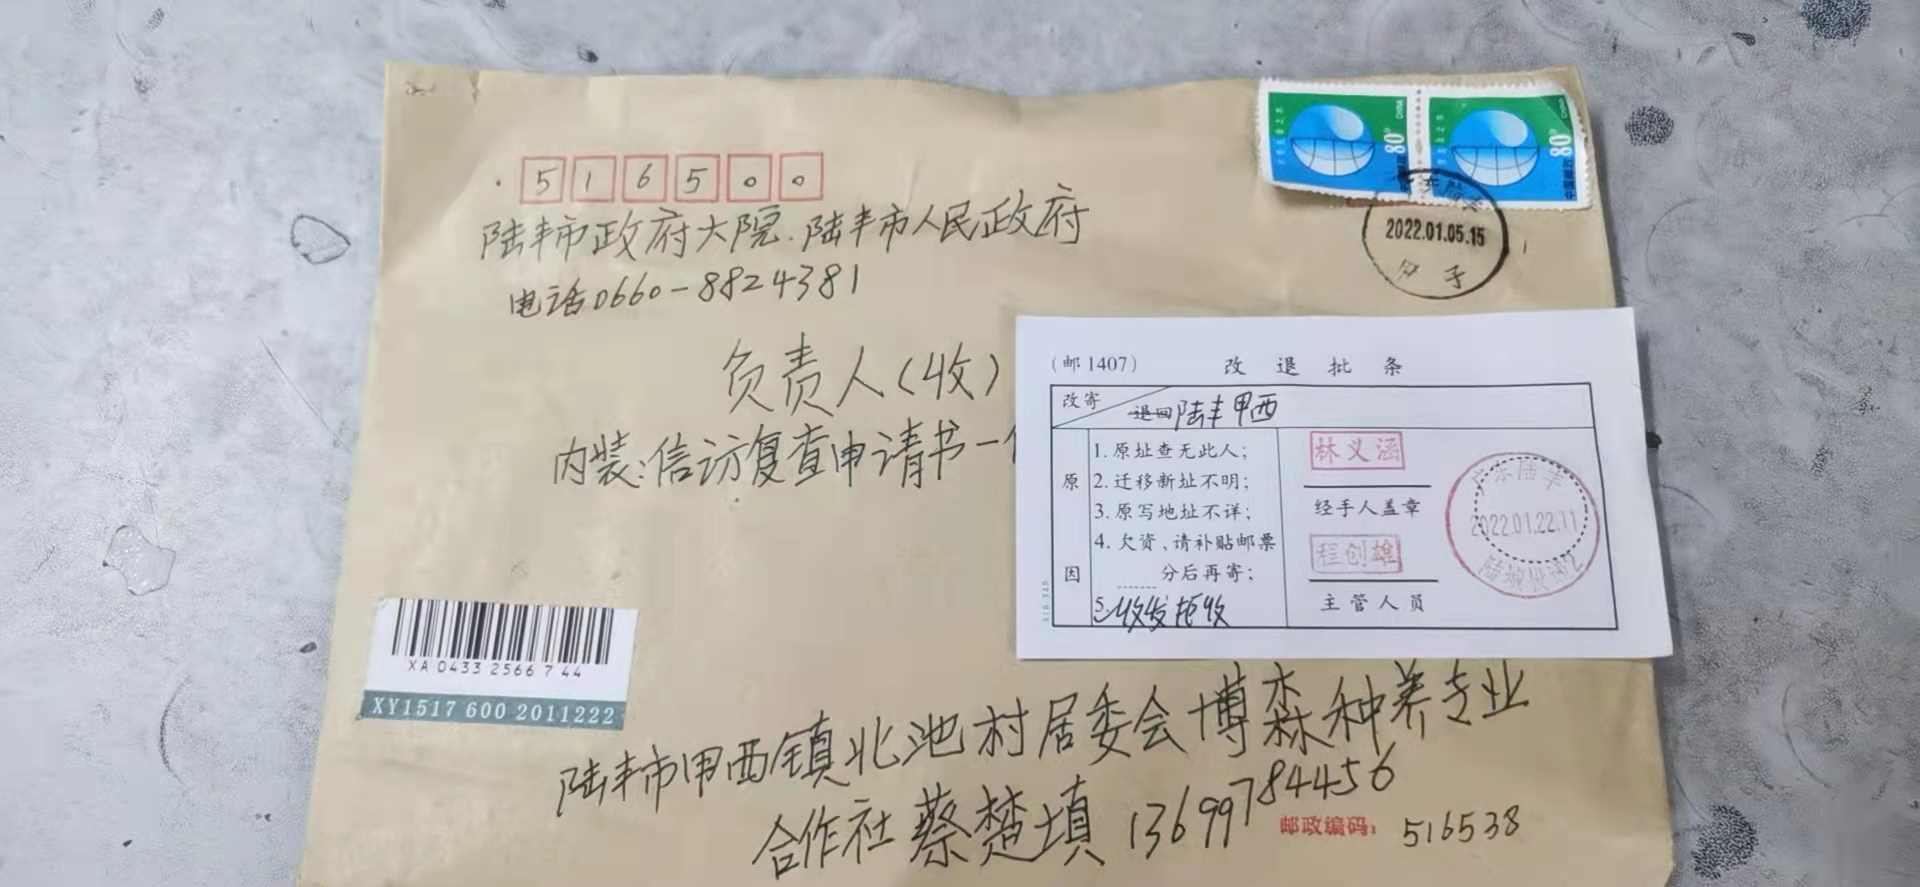 516500
陆丰市政府大院.陆丰市人民政府
电话0660-8824381
负责人(收)
内装:信访复查申请书一
80
CHINA
80
CHINA
2022.01.05.15
夕子
(邮1407)
改退批条
改寄
退回 陆丰甲西
原因
1.原址查无此人;
2.迁移新址不明;
3.原写地址不详;
4.欠资、请补贴邮票
分后再寄;
5.收发拒收
林义涵
经手人盖章
程创雄
主管人员
广东陆丰
2022.01.22.11
XA 0433 2566 7 44
XY1517 600 2011222
陆丰市甲西镇北池村居委会博森种养专业
合作社蔡楚填 13699784456
邮政编码: 516538